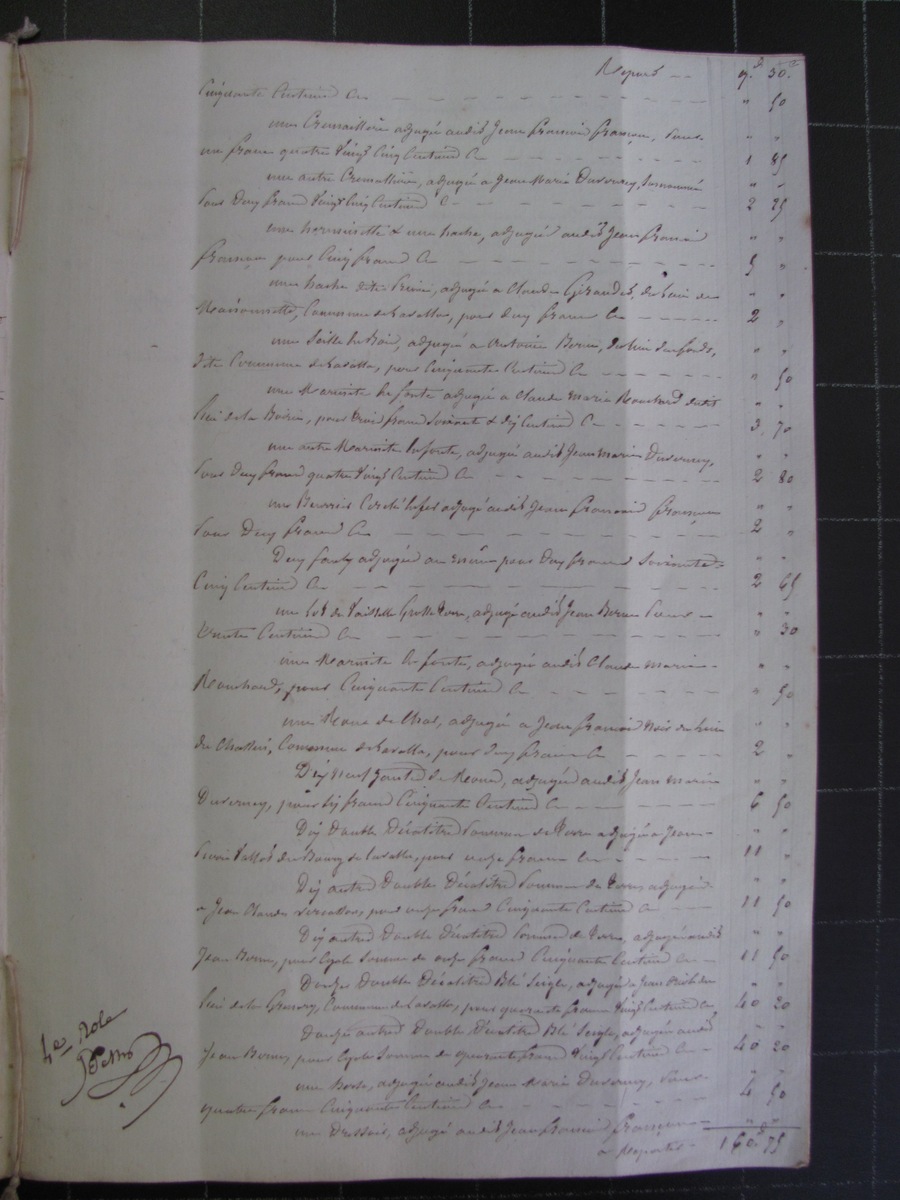 Report -- 9. 30.
Cinquante Centimes Cy " 50
une Cremaillere adjugée audit Jean François françon, sous " "
un franc quatre vingt Cinq Centimes Cy 1 85
une autre Cremaillere, adjugée a Jean Marie Duvernay, " "
sous Deux francs vingt Cinq Centimes Cy 2 25
une herminette & une hache, adjugée audit Jean françois " "
françon pour Cinq francs Cy 5 "
une hache adjugée a Claude Giraudet, du lieu de " "
Maisonnette, Commune de Lavalla, pour deux francs Cy 2 "
une Seille de Bois, adjugée a Antoine du lieu
dite Commune de Lavalla, pour Cinquante Centimes Cy " 50
une Marmite de fonte adjugée a Claude Marie Rouchard dudit " "
lieu de la pour trois francs soixante & dix Centimes Cy 3. 70
une autre Marmite de fonte, adjugée audit Jean Marie Duvernay, " "
sous Deux francs quatre vingt Centimes Cy 2 80
une adjugé audit Jean françois françon " "
sous Deux francs Cy 2 "
Deux adjugée au même pour Deux francs soixante " "
Cinq Centimes Cy 2 65
un Lot de Vaisselle adjugé audit Jean sous " "
trente Centimes Cy " 30
une Marmite de fonte, adjugée audit Claude Marie " "
Rouchard, pour Cinquante Centimes Cy " 50
une Roue de Char, adjugée a Jean françois du lieu " "
du Commune de Lavalla, pour deux francs Cy 2 "
Dix neuf Jantes de Roues, adjugée audit Jean Marie " "
Duvernay, pour Six francs Cinquante Centimes Cy 6 50
Dix Double Décalitre Pommes de terre adjugée a Jean " "
du Bourg de Lavalla, pour onze francs Cy 11 "
Dix autres Doubles Décalitre Pommes de terre, adjugée " "
a Jean Claude pour onze francs Cinquante Centimes Cy 11 50
Dix autres Double Décalitre Pommes de terre, adjugée audit " "
Jean pour Pareille Somme de onze francs Cinquante Centimes Cy 11 50
Douze Double Décalitre Blé Seigle, adjugée a Jean du " "
lieu de la Commune de Lavalla, pour quarante francs vingt Centimes Cy 40 20
Douze autres Double Décalitre Blé Seigle, adjugée audit " "
Jean pour Pareille Somme de quarante francs vingt Centimes Cy 40 20
une adjugée audit Jean Marie Duvernay, sous " "
quatre francs Cinquante Centimes Cy 4 50
un Dressoir, adjugé audit Jean françois françon " "
a Reporter 160. 75
4e Role